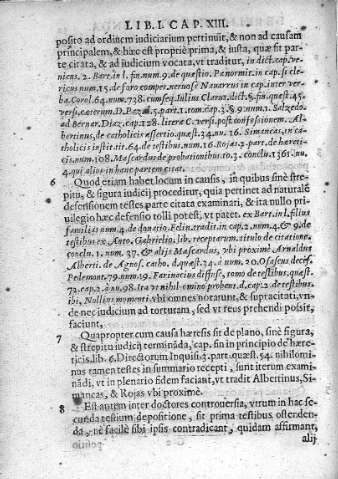 LIB I. CAP. XIII.
posito ad ordinem iudiciarium pertinuit, & non ad causam
principalem, & hæc est propriè prima, & iusta, quæ sit par-
te citata, & ad iudicium vocata, vt traditur, in dict. cap. ve-
niens. 2. Bart. in l. fin. num. 9. de quæstio. Panormit. in cap. si cle-
ricus num. 15. de foro compet. Nauarrus in cap. inter ver-
ba. Corol. 64. num. 738. Iulius Clarus, dict. §. fin. quæst. 45.
1. tom. cap. 3. § 9. num. 1. Salzedo.
ad Bernar. Diaz. cap. 128. litera C. vers. post confessionem. Al-
bertinus, de catholicis assertio. quæst. 34. nu. 16. Simancas, in ca-
tholicis instit. tit. 64. de testibus. num. 16. Rojas 2. par. de hæreti-
cis num. 108. Mascardus de probationibus to. 3. conclu. 1361. nu.
4. qui alios in hanc partem citat.
6 Quod etiam habet locum in causis, in quibus sinè strepi-
tu, & figura iudicij proceditur, quia pertinet ad naturalẽ
defensionem testes parte citata examinari, & ita nullo pri-
uilegio hæc defensio tolli potest, vt patet. ex Bart. in l. filius
familias num. 4. de donatio. Felin. tradit in cap. 2. num. 4. & 9. de
testibus ex Anto. Gabrielio, lib. receptarum. titulo de citatione.
conclu. 1. num. 37. & alijs Mascardus, vbi proximè Arnaldus
Alberti. de Agnos. catho. d. quæst. 34. num. 20. Osascus decis.
Pedemont. 79. num. 19. Farinacius diffusè, tomo de testibus. quæst.
72. cap. 2. à nu. 98. Ita vt nihil omninò probent. d. cap. 2. de testibus.
ibi, Nullius momenti vbi omnes notarunt, & supra citati, vn-
de nec iudicium ad torturam, sed vt reus prehendi possit,
faciunt.
7 Quapropter cum causa hæresis sit de plano, sinè figura,
& strepitu iudicij terminãda, cap. fin in principio de hære-
ticis. lib. 6. Directorum Inquisi. 3. part. quæst. 54. nihilomi-
nus tamen testes in summario recepti, sunt iterum exami-
nãdi, vt in plenario fidem faciant, vt tradit Albertinus, Si-
mancas, & Rojas vbi proximè.
8 Est autem inter doctores controuersia, vtrum in hac se-
cunda testium depositione, sit prima testibus ostenden-
da, ne facilè sibi ipsis contradicant, quidam affirmant,
alij